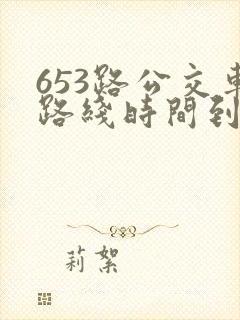 653路公交車
路綫時間到
莉絮